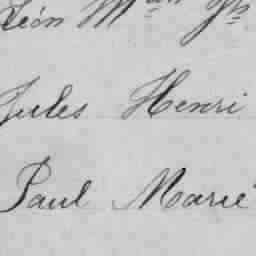 Léon Mᵃⁿ Jʰ
Jules Henri
Paul Marie